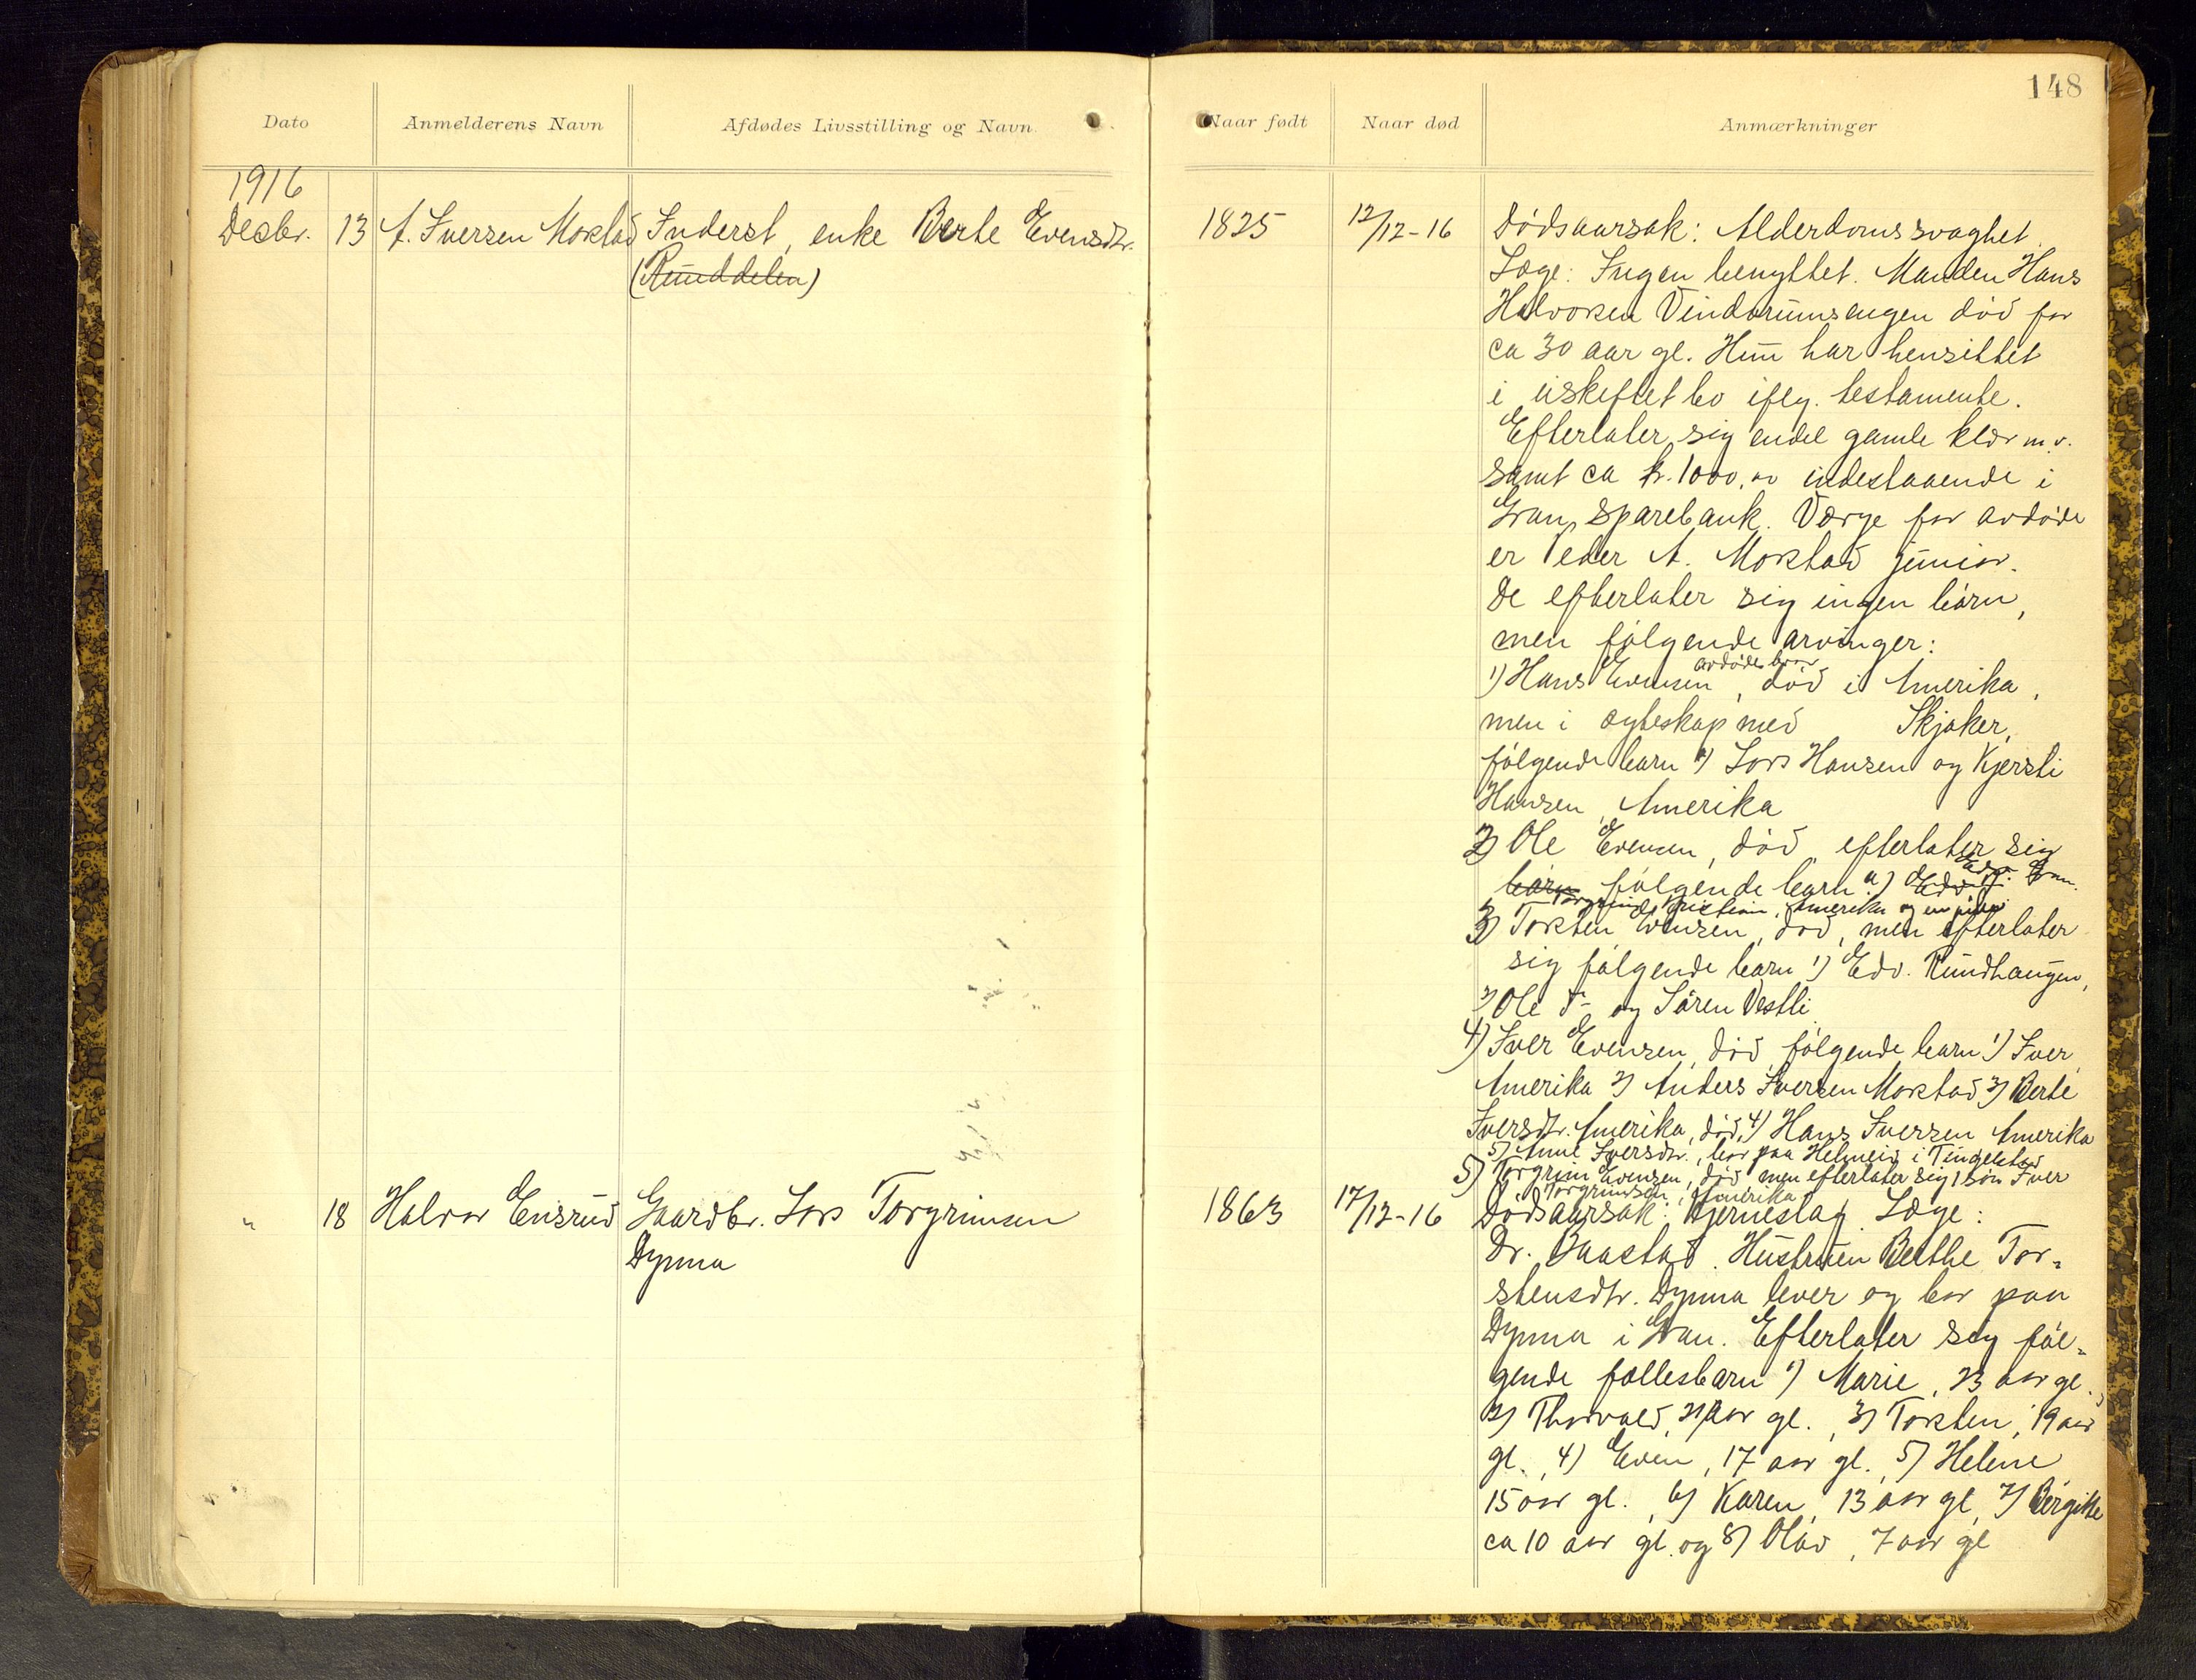 148
Dato Anmelderens Navn Afdødes Livsstilling og Navn Naar født Naar død Anmærkninger
1916
Decbr. 13 A. Iversen Morstad Inderst, enke Berte Evensdtr.
(Runddelen)
1825 12/12-16 Dødsaarsak: Alderdomssvaghet.
Læge: Ingen benyttet. Manden Hans
Halvorsen Vindorumsengen død for
ca 30 aar gl. Hun har hensittet
i uskiftet bo iflg. testamente.
Efterlater sig endel gamle klær m.v.
samt ca kr. 1000,00 indestaaende i
Gran Sparebank. Værge for avdøde
er eier A. Morstad junior.
De efterlater sig ingen barn,
men følgende arvinger:
avdødes bror
1) Hans Evensen, død i Amerika,
men i ægteskap med Skjaker,
følgende barn a) Lars Hansen og Kjersti
Hansen, Amerika
2) Ole Evensen, død, efterlater sig
barn følgende barn: a)
Torgrim, Kristian, Amerika og en pike
3) Torsten Evensen, død, men efterlater
sig følgende barn 1) Edv. Rundhaugen,
2) Ole og Søren Vestli
4) Iver Evensen, død, følgende barn 1) Iver
Amerika 2) Anders Iversen Morstad 3) Berte
Iversdtr. Amerika, død, 4) Hans Iversen Amerika
5) Anne Iversdtr., bor paa Helmeid i Tingelstad
5) Torgrim Evensen, død men efterlater sig 1 søn Iver
Torgrimsen, Amerika
" 18 Halvor Ensrud Gaardbr. Lars Torgrimsen
Dynna
1863 17/12-16 Dødsaarsak: Hjerneslag. Læge:
Dr. Baastad. Hustruen Berthe Tor-
stensdtr. Dynna lever og bor paa
Dynna i Gran. Efterlater sig føl-
gende fællesbarn 1) Marie, 23 aar gl.,
2) Thorvald, 21 aar gl., 3) Torsten, 19 aar
gl., 4) Even, 17 aar gl., 5) Helene
15 aar gl., 6) Karen, 13 aar gl, 7) Birgitte
ca 10 aar gl. og 8) Olav, 7 aar gl